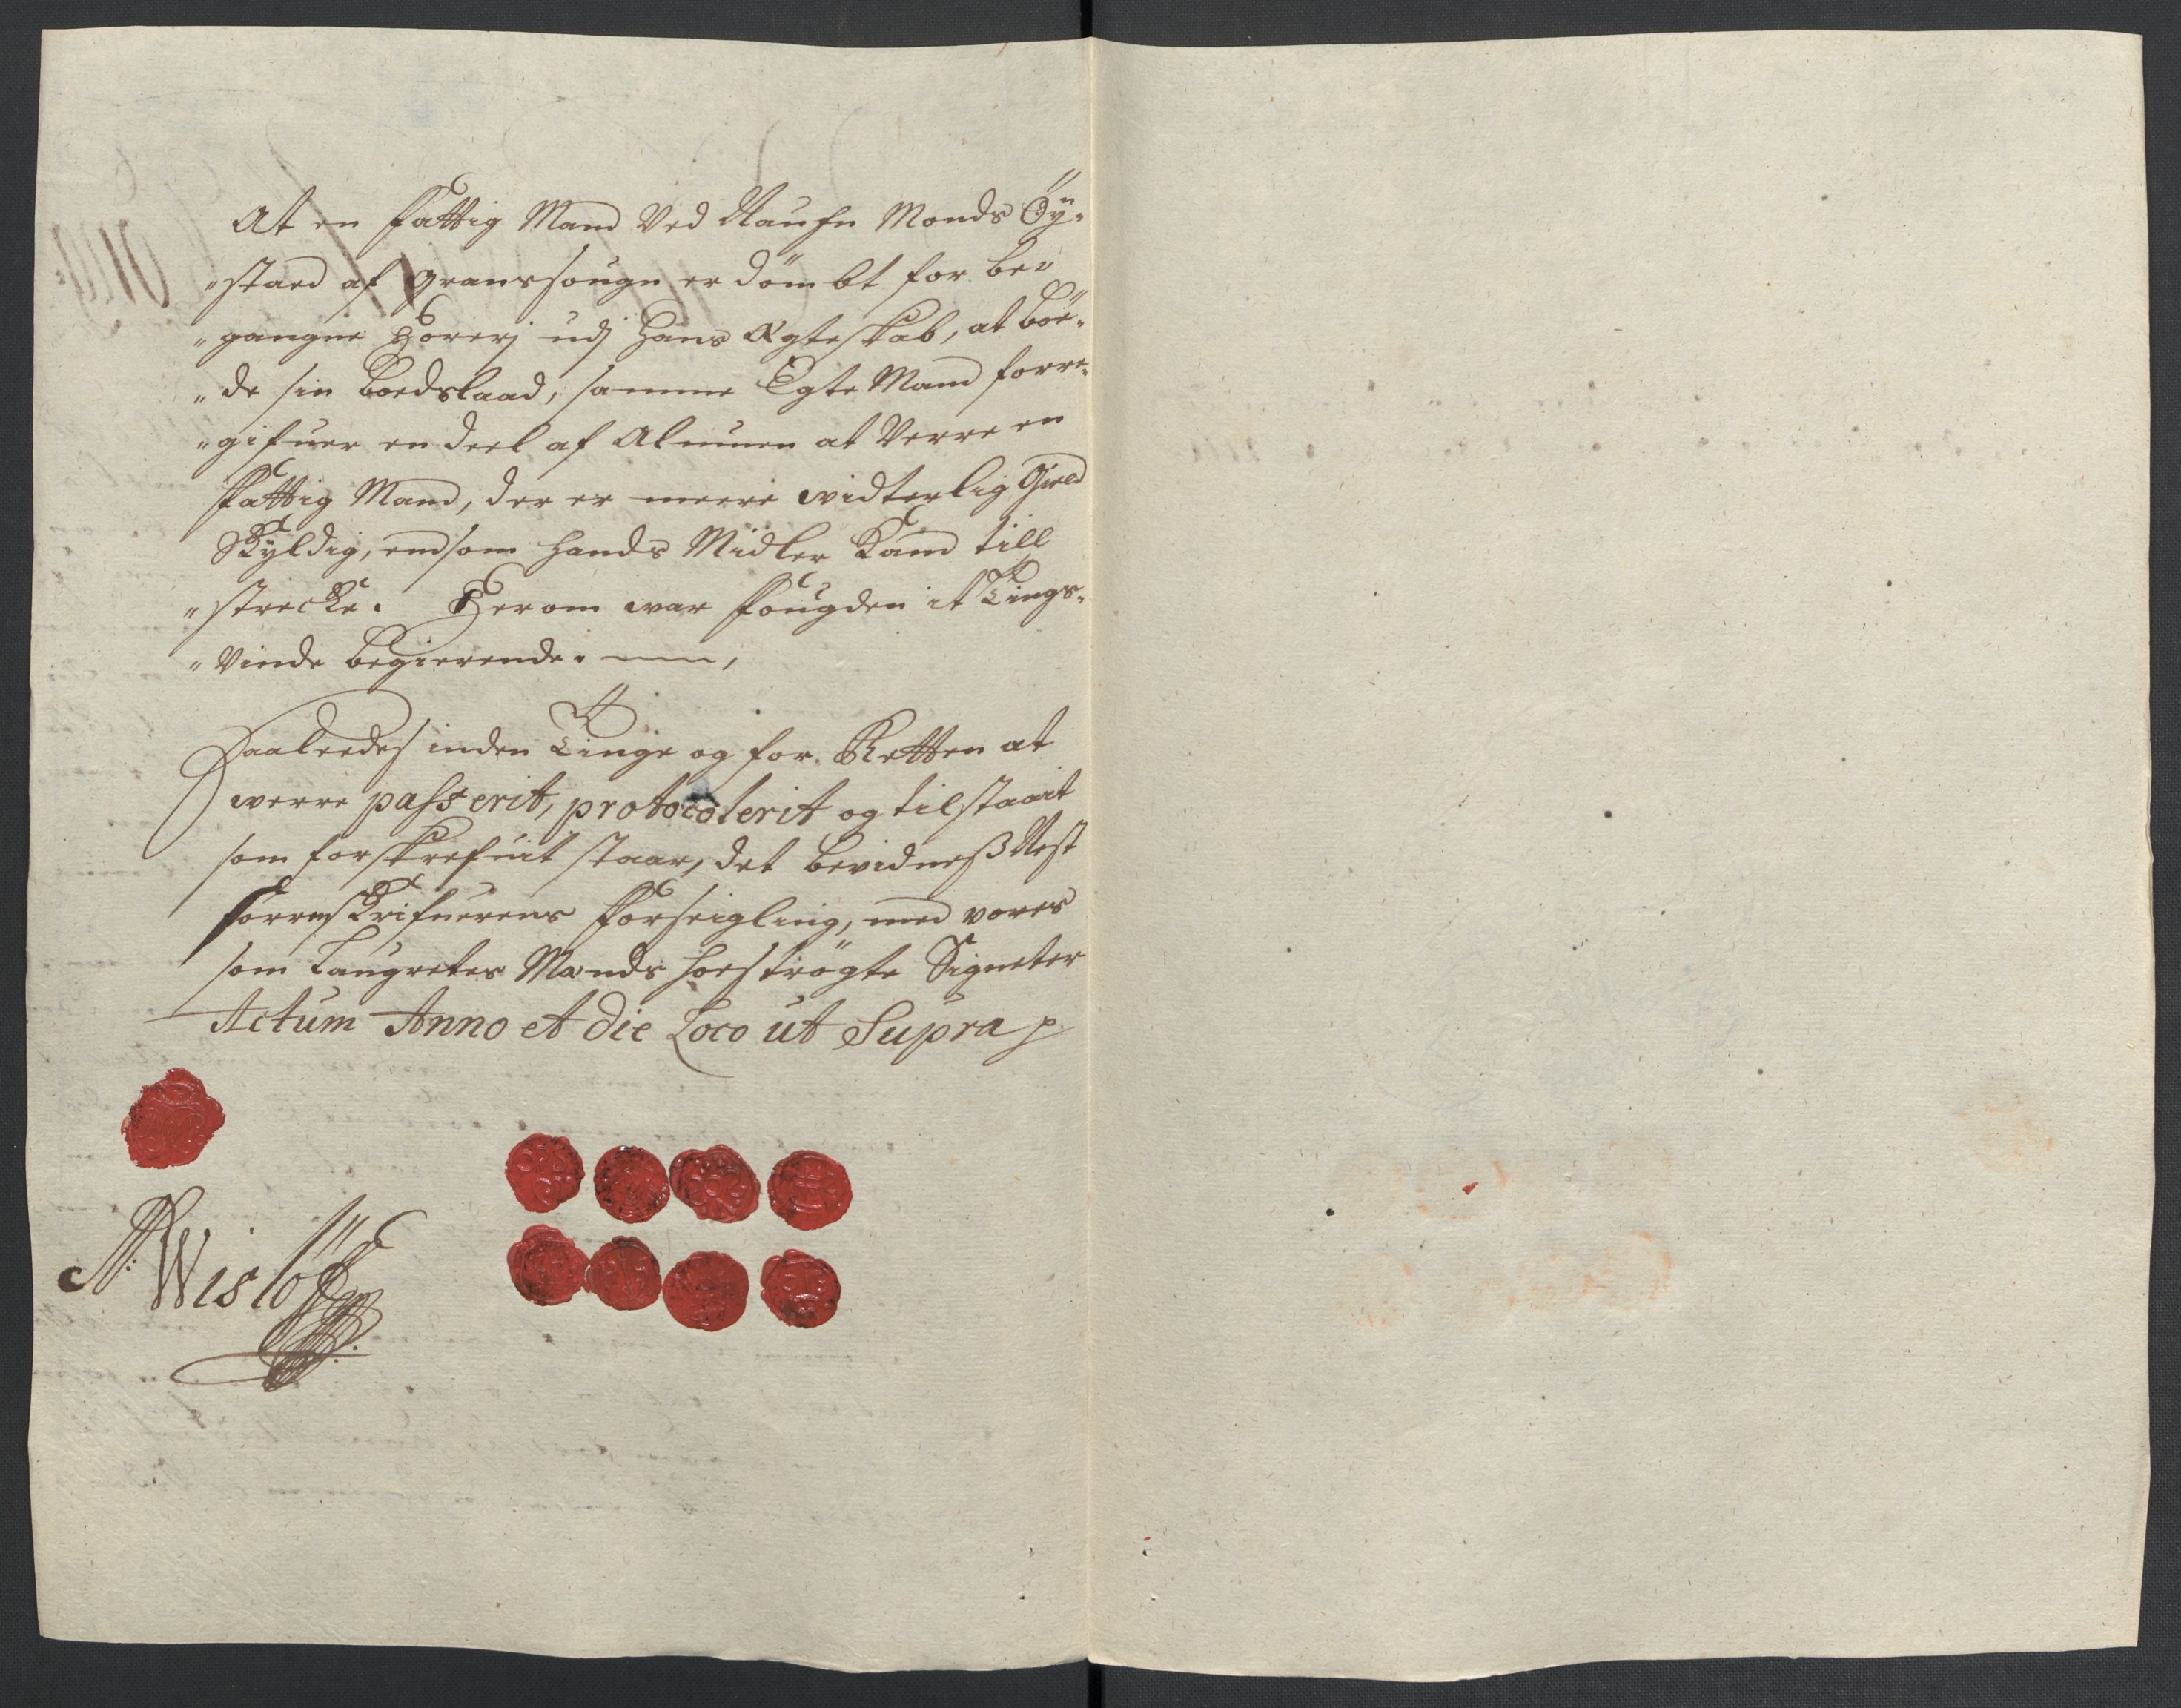 At en fattig Mand Ved Naufn Monds Öÿ-
"stad af Granssougn er dömbt for be"
"gangne Horerj udj Hans Ægteskab, at böe"
"de sin boedslaad, samme Egte Mand forre-
"gifuer en deel af Almuen at Verre en
fattig Mand, der er meere widterlig Gield
Skÿldig, end som Hands Midler Kand till
"strecke. Herom war fougden it Tings-
"Vinde begierende.
Saaleedes inden Tinge og for Retten at
werre passerit, protocolerit og tilstaait
som forskrefuit staar, det bevidneß Nest
Sorrenskrifuerens forseigling, med vores
som Laugrettes Mænds hoeströgte Signeter
Actum Anno et die Loco ut Supra p.
A: Wislöff